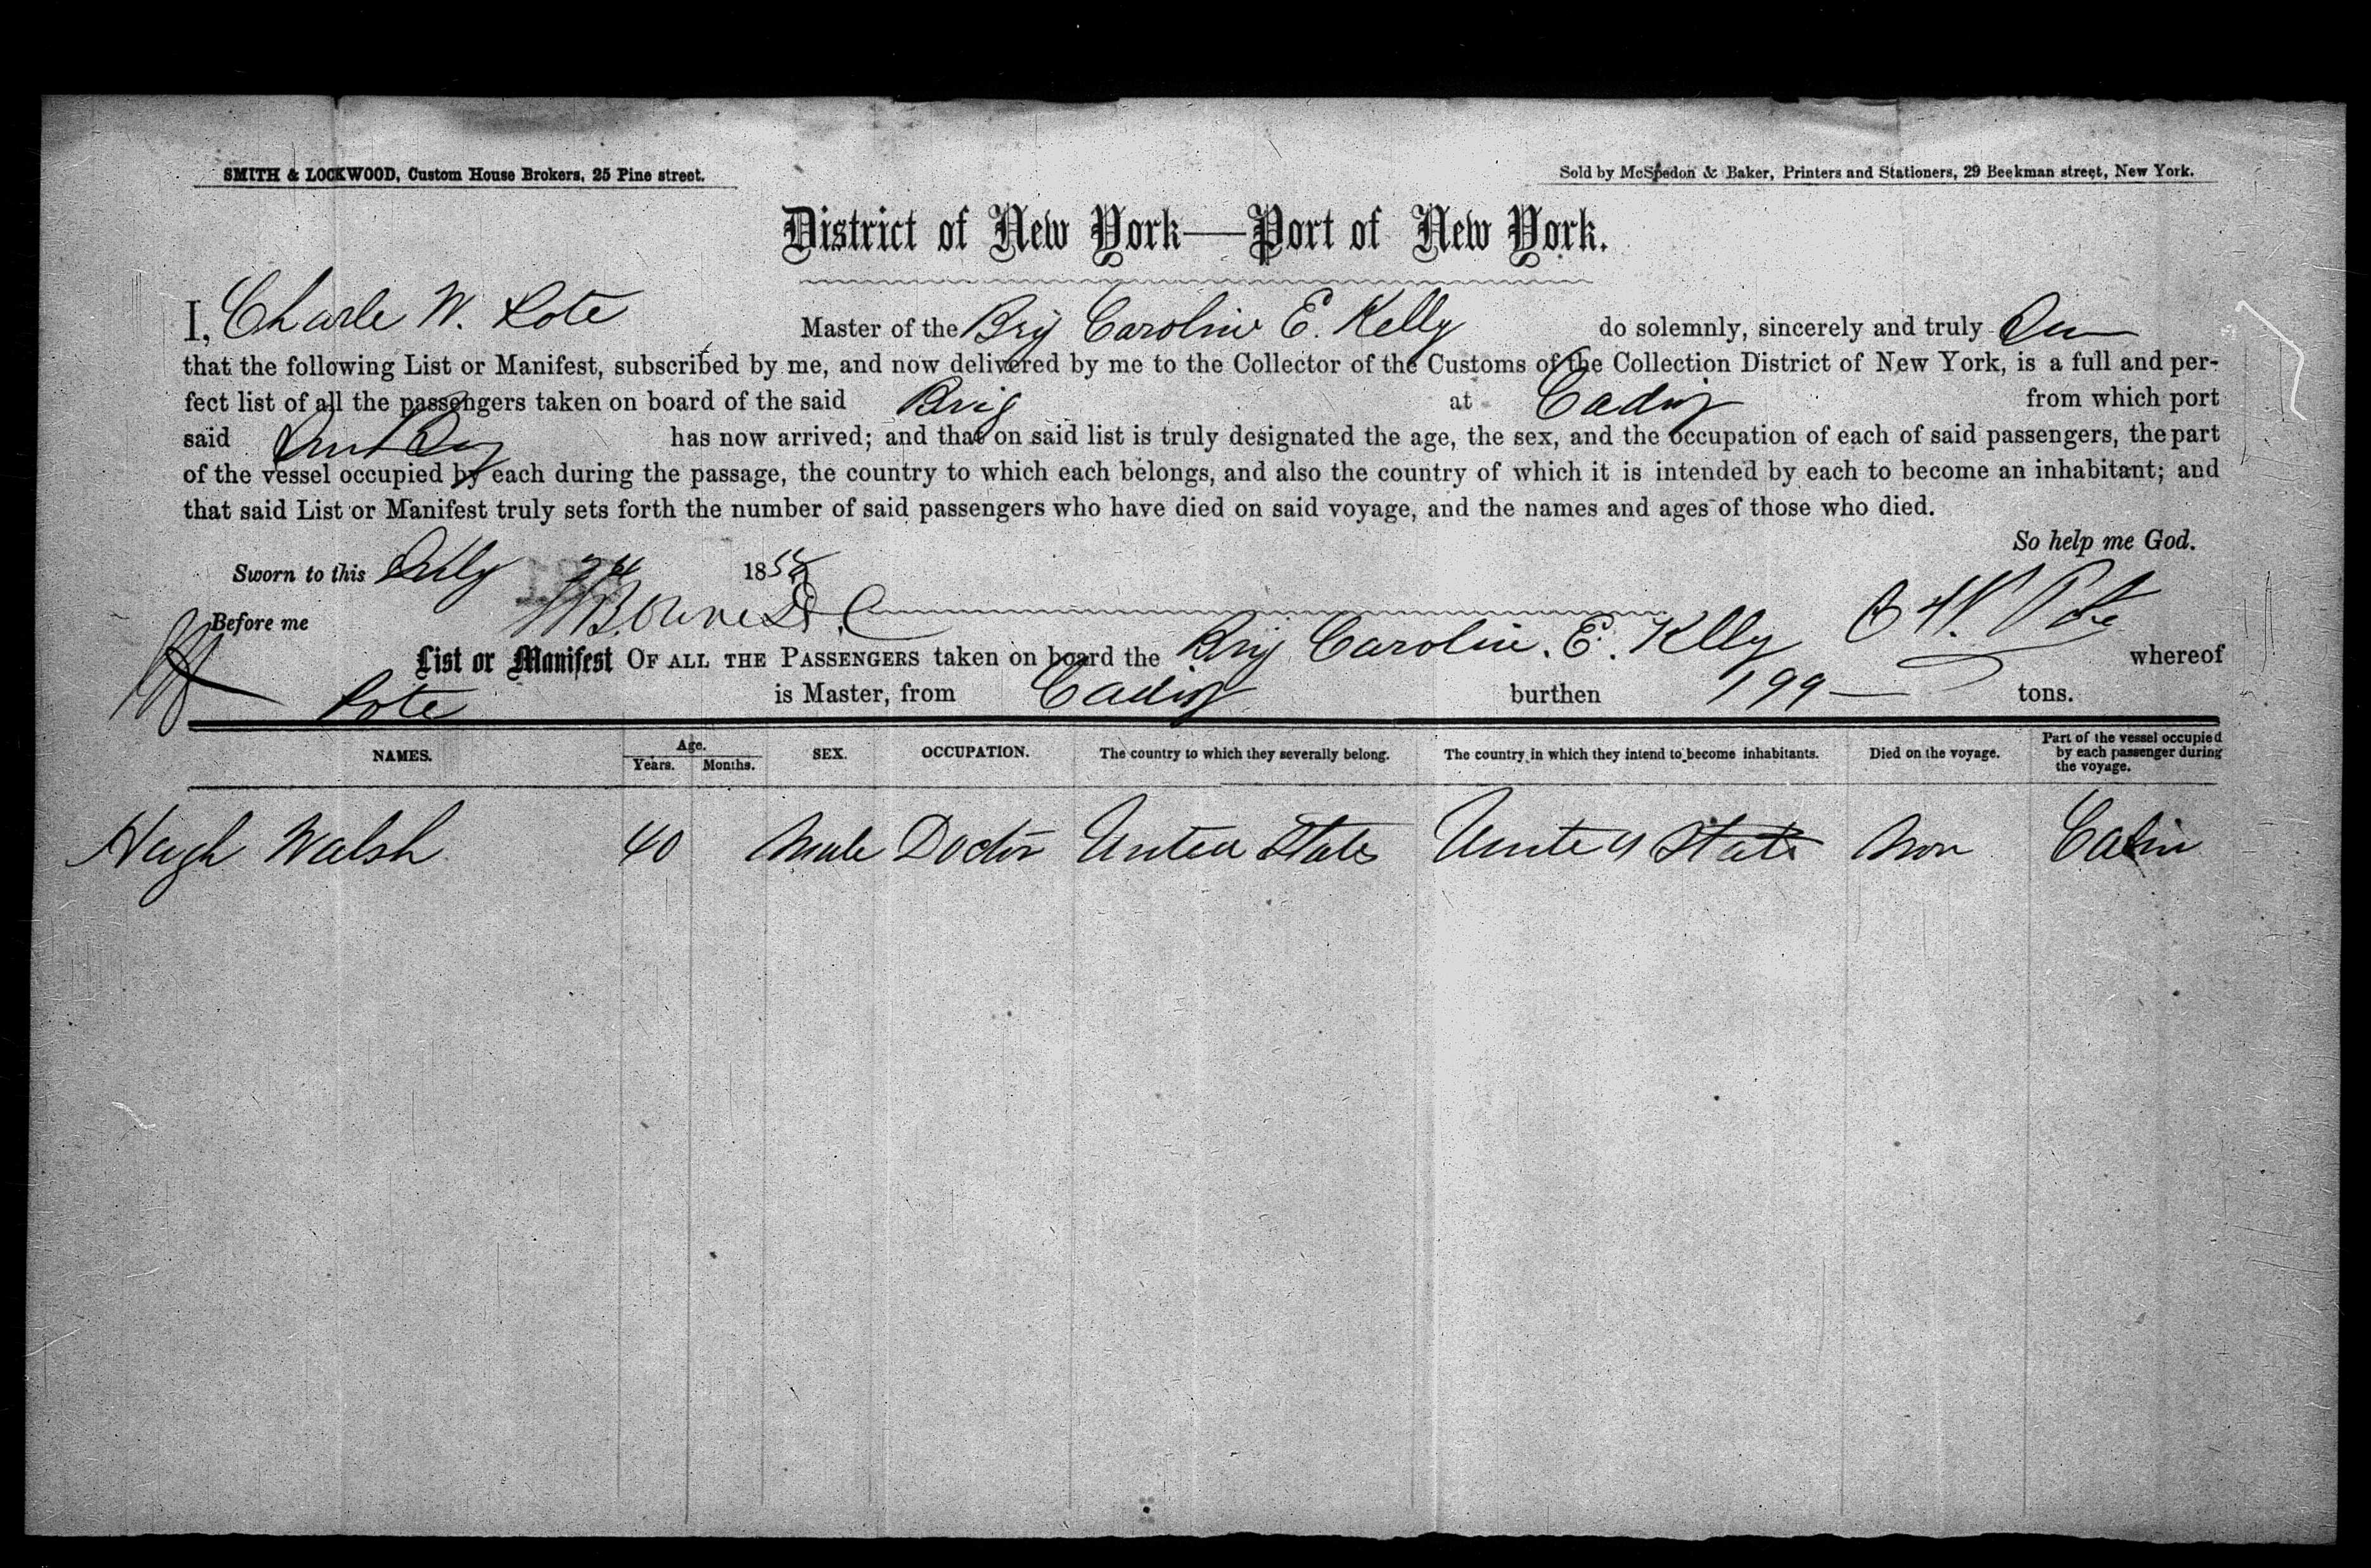 SMITH & LOCKWOOD, Custom House Brokers, 25 Pine street.
Sold by McSpedon & Baker, Printers and Stationers, 29 Beekman street, New York.
District of New York—Port of New York.
I, Charle W. Pote Master of the Brig Caroline E. Kelly do solemnly, sincerely and truly
that the following List or Manifest, subscribed by me, and now delivered by me to the Collector of the Customs of the Collection District of New York, is a full and per-
fect list of all the passengers taken on board of the said Brig at Cadiz from which port
said has now arrived; and that on said list is truly designated the age, the sex, and the occupation of each of said passengers, the part
of the vessel occupied by each during the passage, the country to which each belongs, and also the country of which it is intended by each to become an inhabitant; and
that said List or Manifest truly sets forth the number of said passengers who have died on said voyage, and the names and ages of those who died.
So help me God.
Sworn to this July 1855
Before me C W. Pote
List or Manifest OF ALL THE PASSENGERS taken on board the Brig Caroline. E. Kelly whereof
Pote is Master, from Cadiz burthen 199 — tons.
NAMES. Age. Years. Months. SEX. OCCUPATION. The country to which they severally belong. The country in which they intend to become inhabitants. Died on the voyage. Part of the vessel occupied by each passenger during the voyage.
Hugh Walsh 40 Male Doctor United States United States Non Cabin